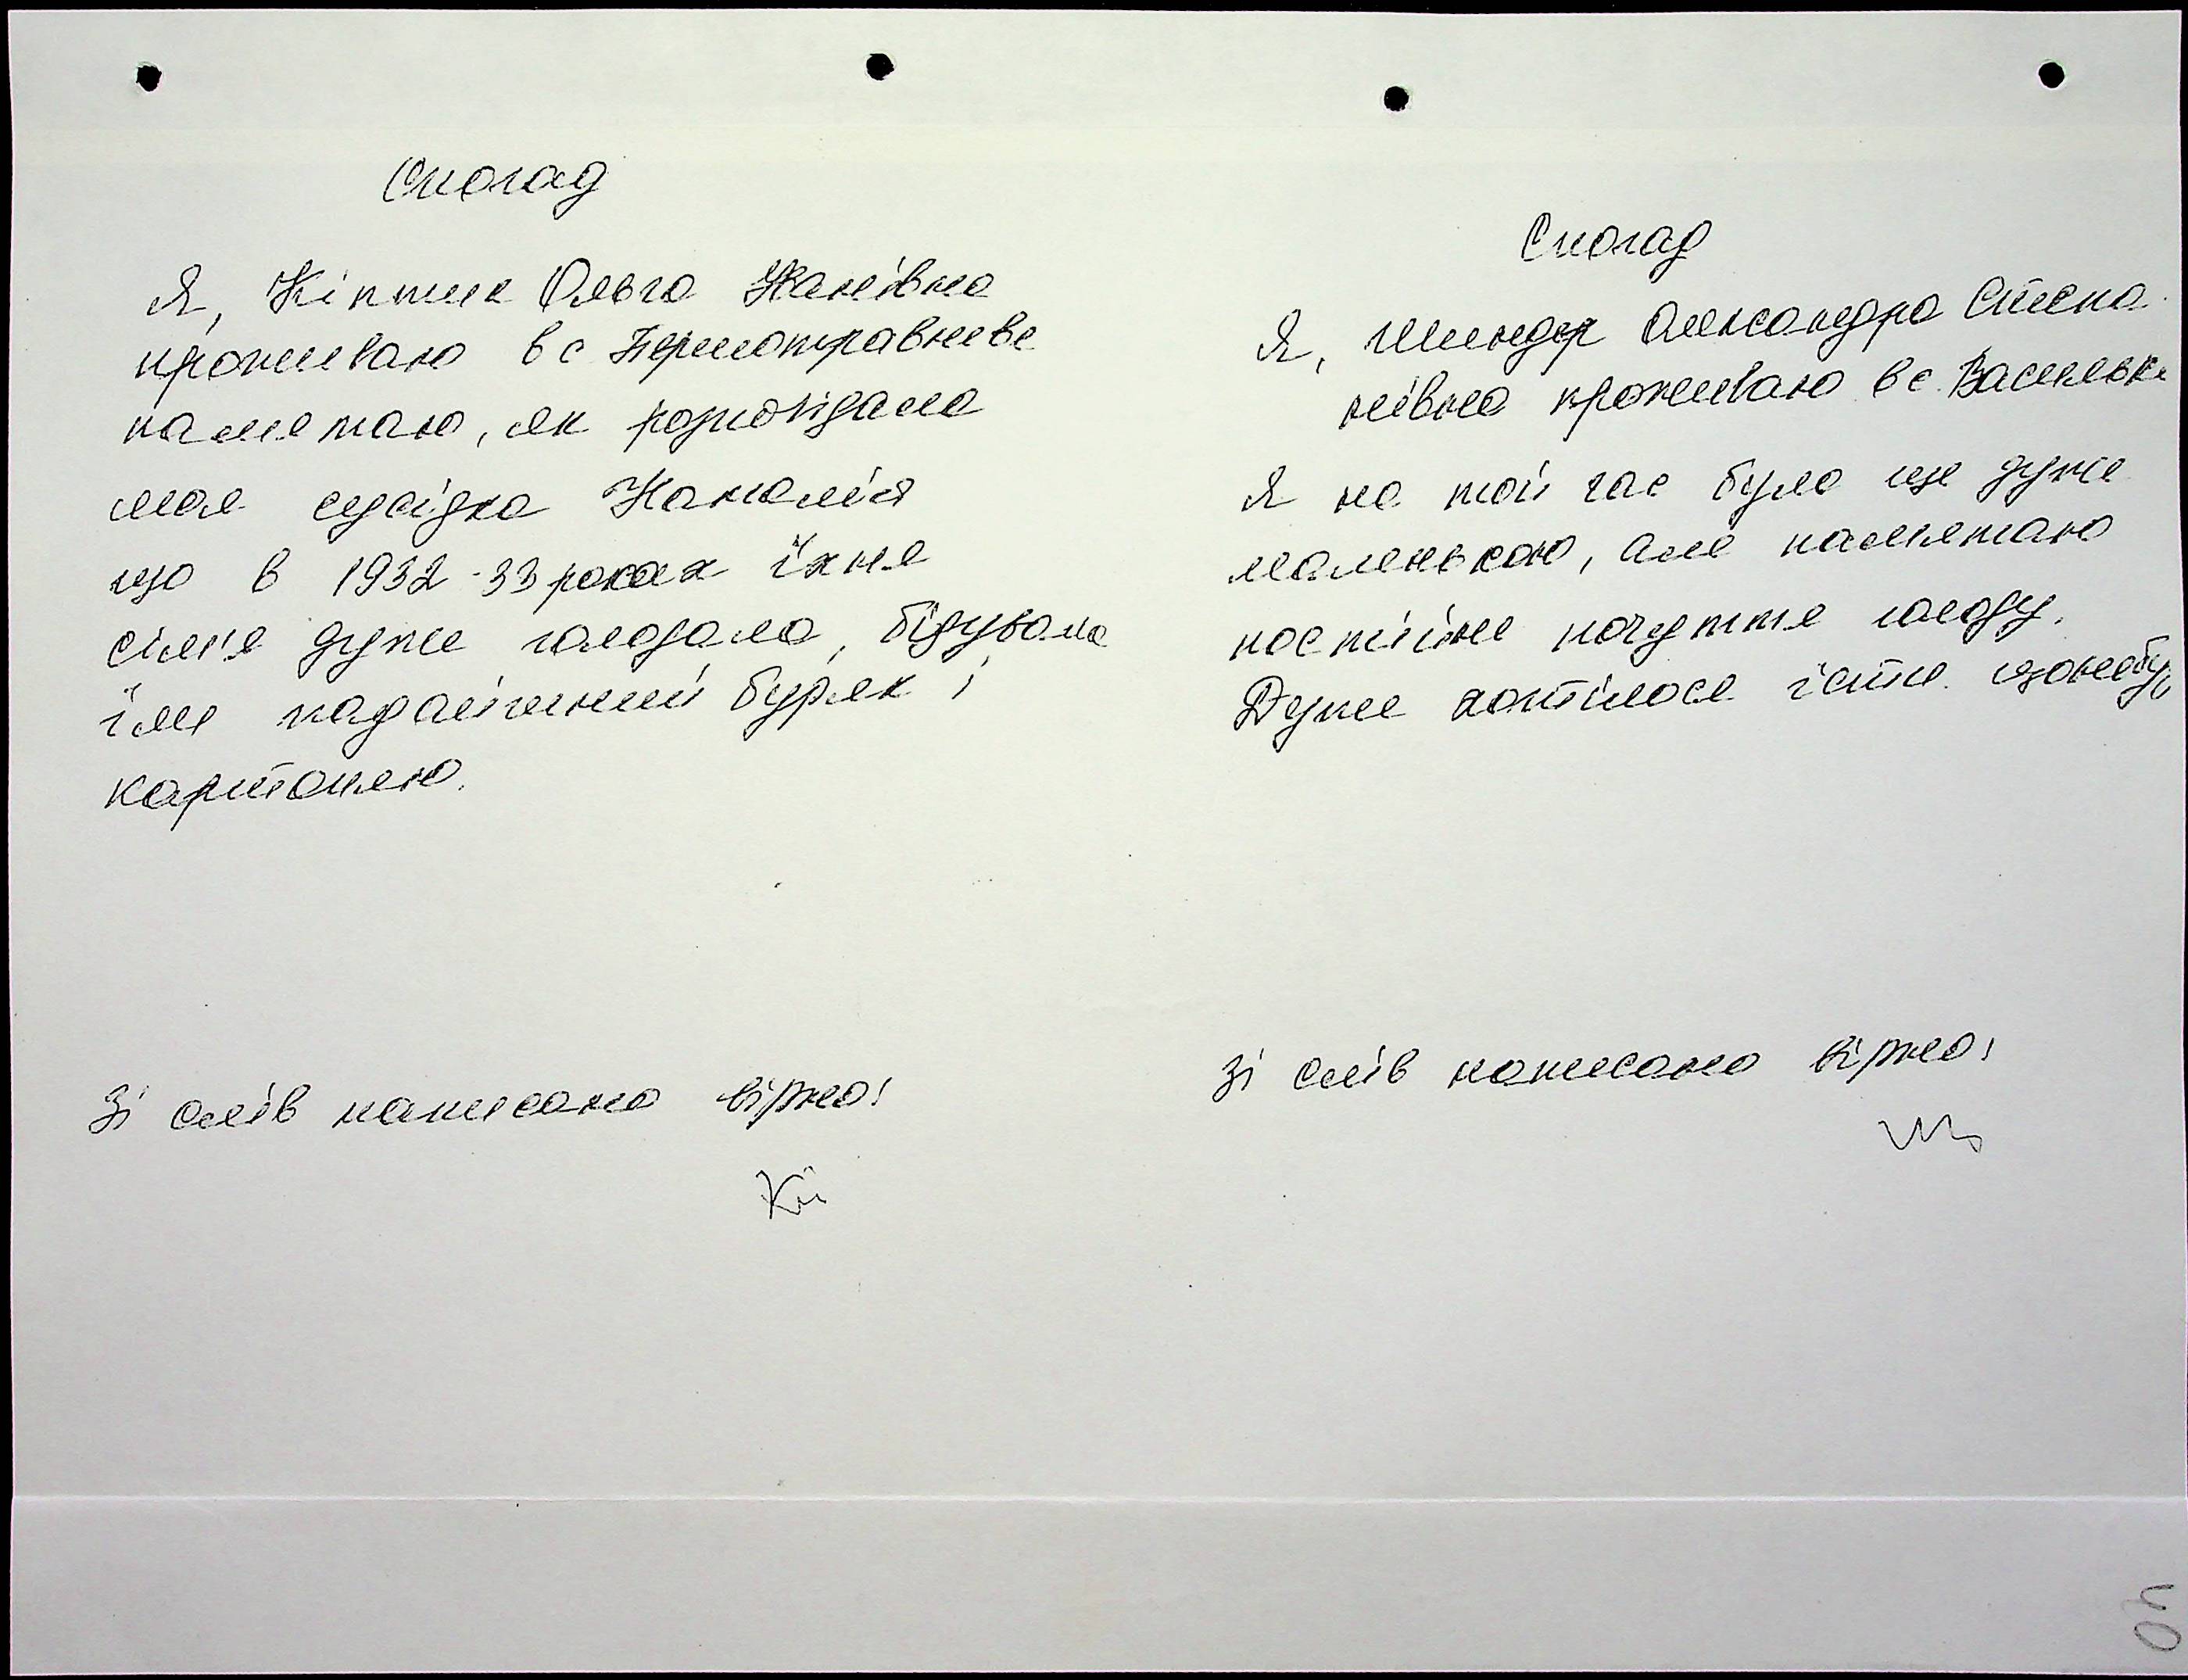 Спогад
Я, Кіптик Ольга Іванівна
проживаю в с Першотравневе
памятаю, як розповідала
моя сусідка Наталія
що в 1932-33 роках їхня
сім'я дуже голодала, бідувала
їли
картоплю.
Зі слів написано вірно!
Спогад
Я, Шиндер Олександра Степа
нівна проживаю в с. Васильки
Я на той час була ще дуже
маленькою, але памятаю
постійне почуття голоду.
Дуже хотілося їсти щонебу
Зі слів написано вірно!